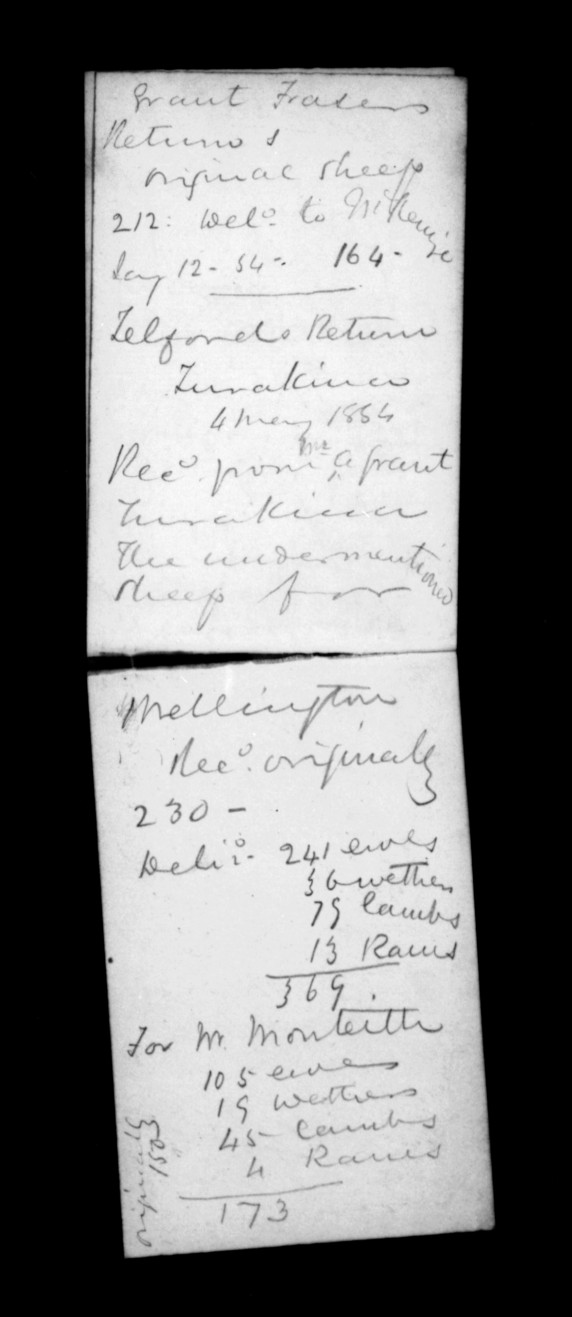 Grant Frasers
Returns
original sheep
212: Delᵈ to McKenzie
Say 12 - 54 -. 164 -
Telfords Return
Turakina
4 May 1854
Recᵈ from Mr A Grant
Turakina
the undermentioned
sheep for
Wellington
Recᵈ originally
230 -
Delivᵈ - 241 ewes
36 wethers
79 lambs
13 Rams
369
For Mr. Monteith
105 ewes
19 wethers
45 lambs
4 Rams
173
originally